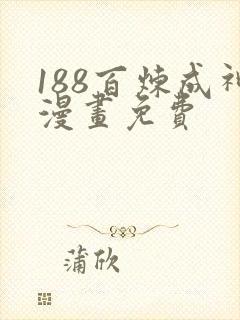 188百炼成神
漫畫免費
蒲欣